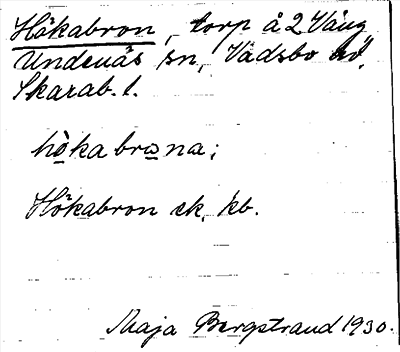 Hökabron, torp å 2 Vång
Undenäs sn, Vadsbo hd,
Skarab. l.
hökabrona;
Hökabron ek. kb.
Maja Bergstrand 1930.